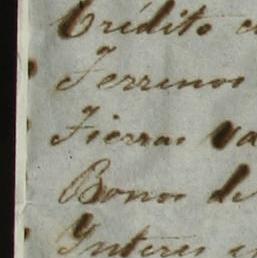 Crédito
Terrenos
Tierras va
Bonos de
Interes